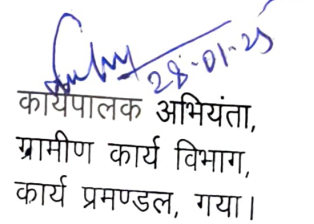 28-01-25
कार्यपालक अभियंता,
ग्रामीण कार्य विभाग,
कार्य प्रमण्डल, गया।